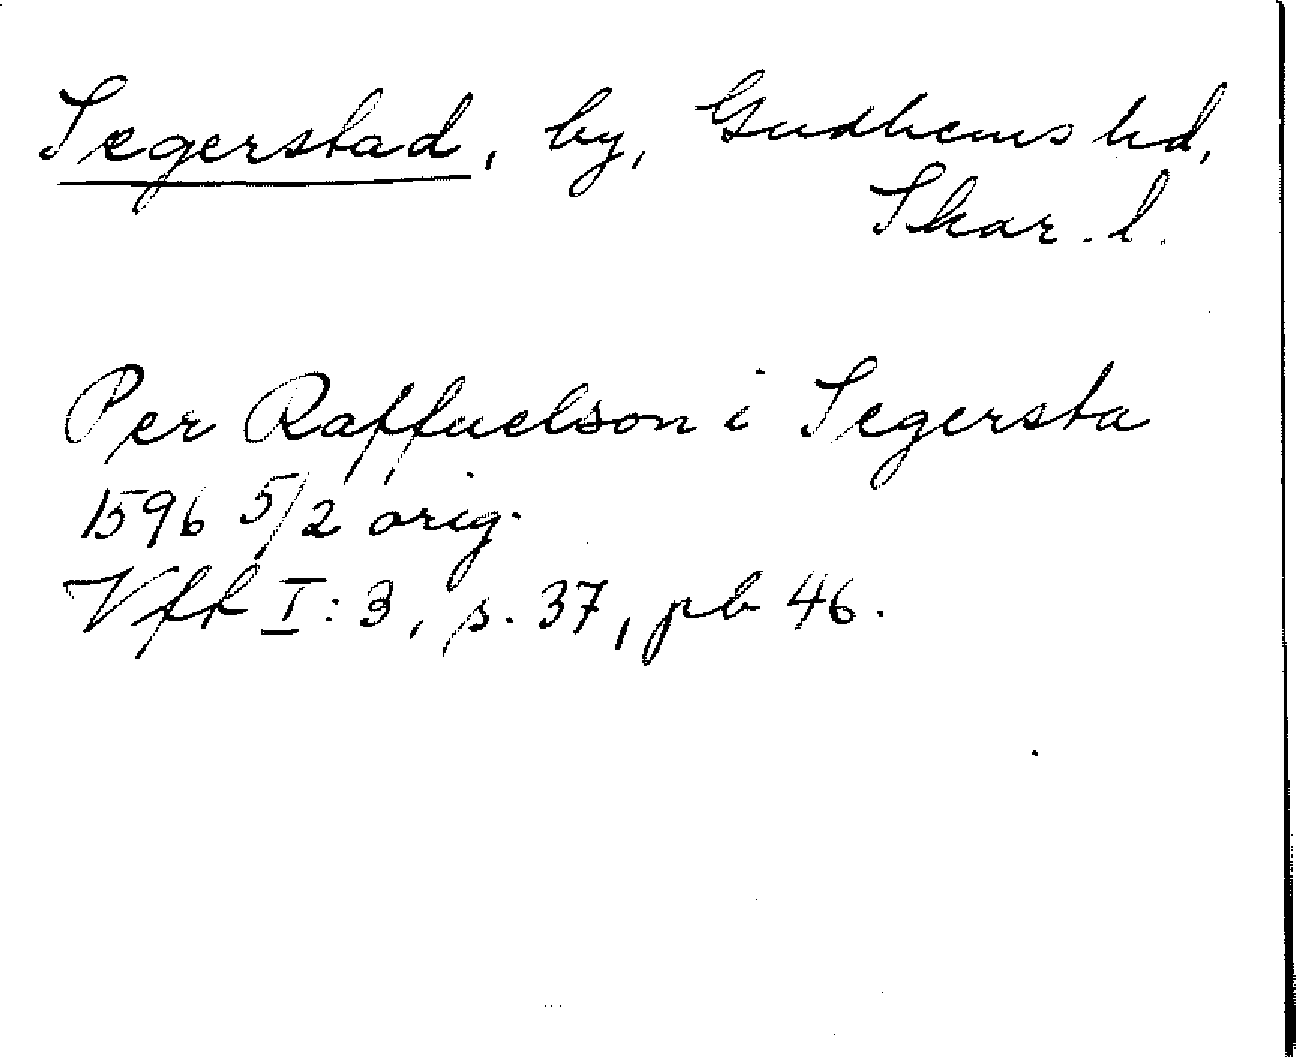 Segerstad, by, Gudhems hd,
Skar. l.
Per Raffuelson i Segersta
1596 5/2 orig.
Vfr I:3, s. 37, pb 46.